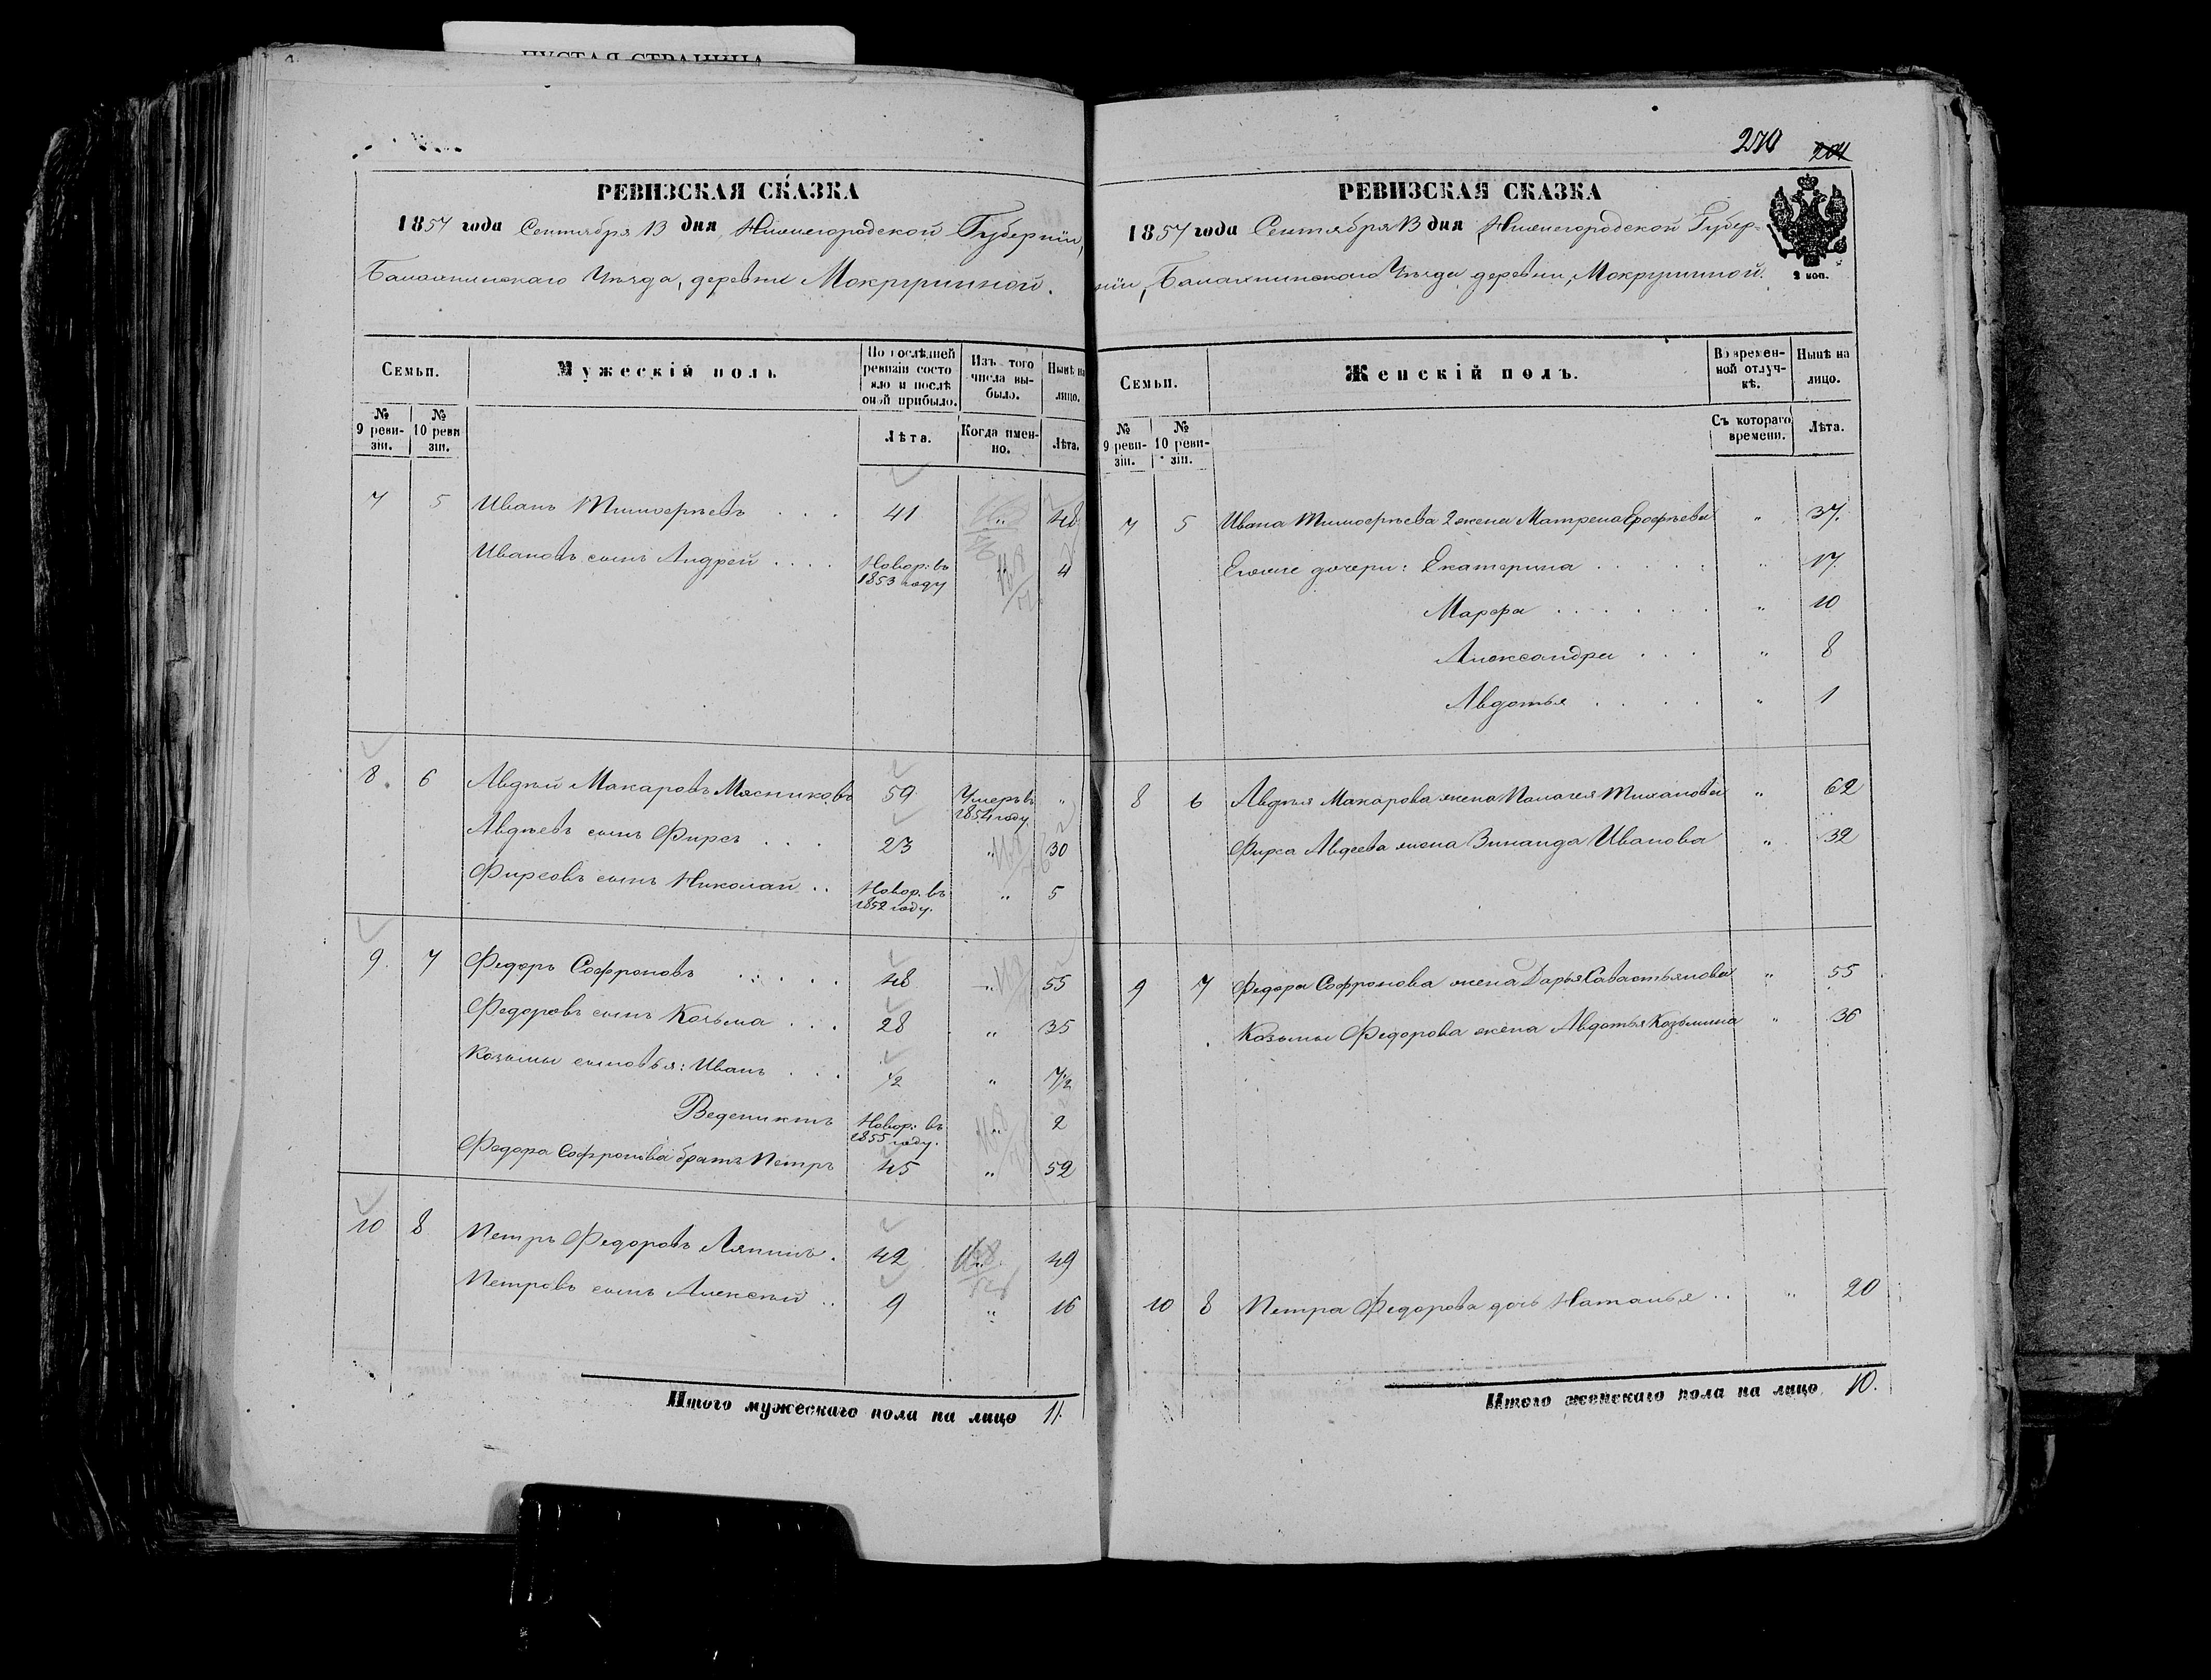 ПУСТАЯ СТРАНИЦА
РЕВИЗСКАЯ СКАЗКА
1857 года Сентября 13 дня, Нижнегородской Губерніи,
Балахнинскаго Уѣзда, деревни
Семьи.
Мужескій полъ
По послѣдней ревизіи состояло и послѣ оной прибыло.
Изъ того числа выбыло.
Нынѣ на лицо.
№ 9 ревизіи.
№ 10 ревизіи.
Лѣта.
Когда именно.
Лѣта.
7 5 Иванъ Тимофѣевъ . . . 41 " 48
Ивановъ сынъ Андрей . . . . Новор: въ 1853 году " 4
8. 6 Авдѣй Макаровъ Мясниковъ 59 Умеръ въ 1854 году. "
Авдѣевъ сынъ Фирсъ . . . 23 " 30
Фирсовъ сынъ Николай . . Новор. въ 1852 году. " 5
9. 7 Федоръ Софроновъ . . . . . 48 " 55
Федоровъ сынъ Козьма . . . 28 " 35
Козьмы сыновья: Иванъ . . . 1/2 " 7 1/2
Ведениктъ Новор: въ 1855 году. " 2
Федора Софронова братъ Петръ 45 " 52
10 8 Петръ Федоровъ Ляпинъ . 42 " 49
Петровъ сынъ Алексѣй . . 9 " 16
Итого мужескаго пола на лицо 11.
204
РЕВИЗСКАЯ СКАЗКА
1857 года Сентября 13 дня, Нижнегородской Губер=
ніи, Балахнинскаго Уѣзда, деревни,
2 коп.
Семьи.
Женскій полъ.
Во временной отлучкѣ.
Нынѣ на лицо.
№ 9 ревизіи.
№ 10 ревизіи.
Съ котораго времени.
Лѣта.
7 5 Ивана Тимофѣева 2 жена Матрена Ерофѣева " 37.
дочери: Екатерина . . . . . " 17.
Марфа . . . . . . " 10
Александра . . . " 8
Авдотья . . . . " 1
8 6 Авдѣя Макарова жена Палагея Тиханова " 62
Фирса Авдеева жена Зинаида Иванова " 32
9 7 Федора Софронова жена Дарья Савастьянова " 55
Козьмы Федорова жена Авдотья Козьмина " 36
10 8 Петра Федорова дочь Наталья . . " 20
Итого женскаго пола на лицо 10.